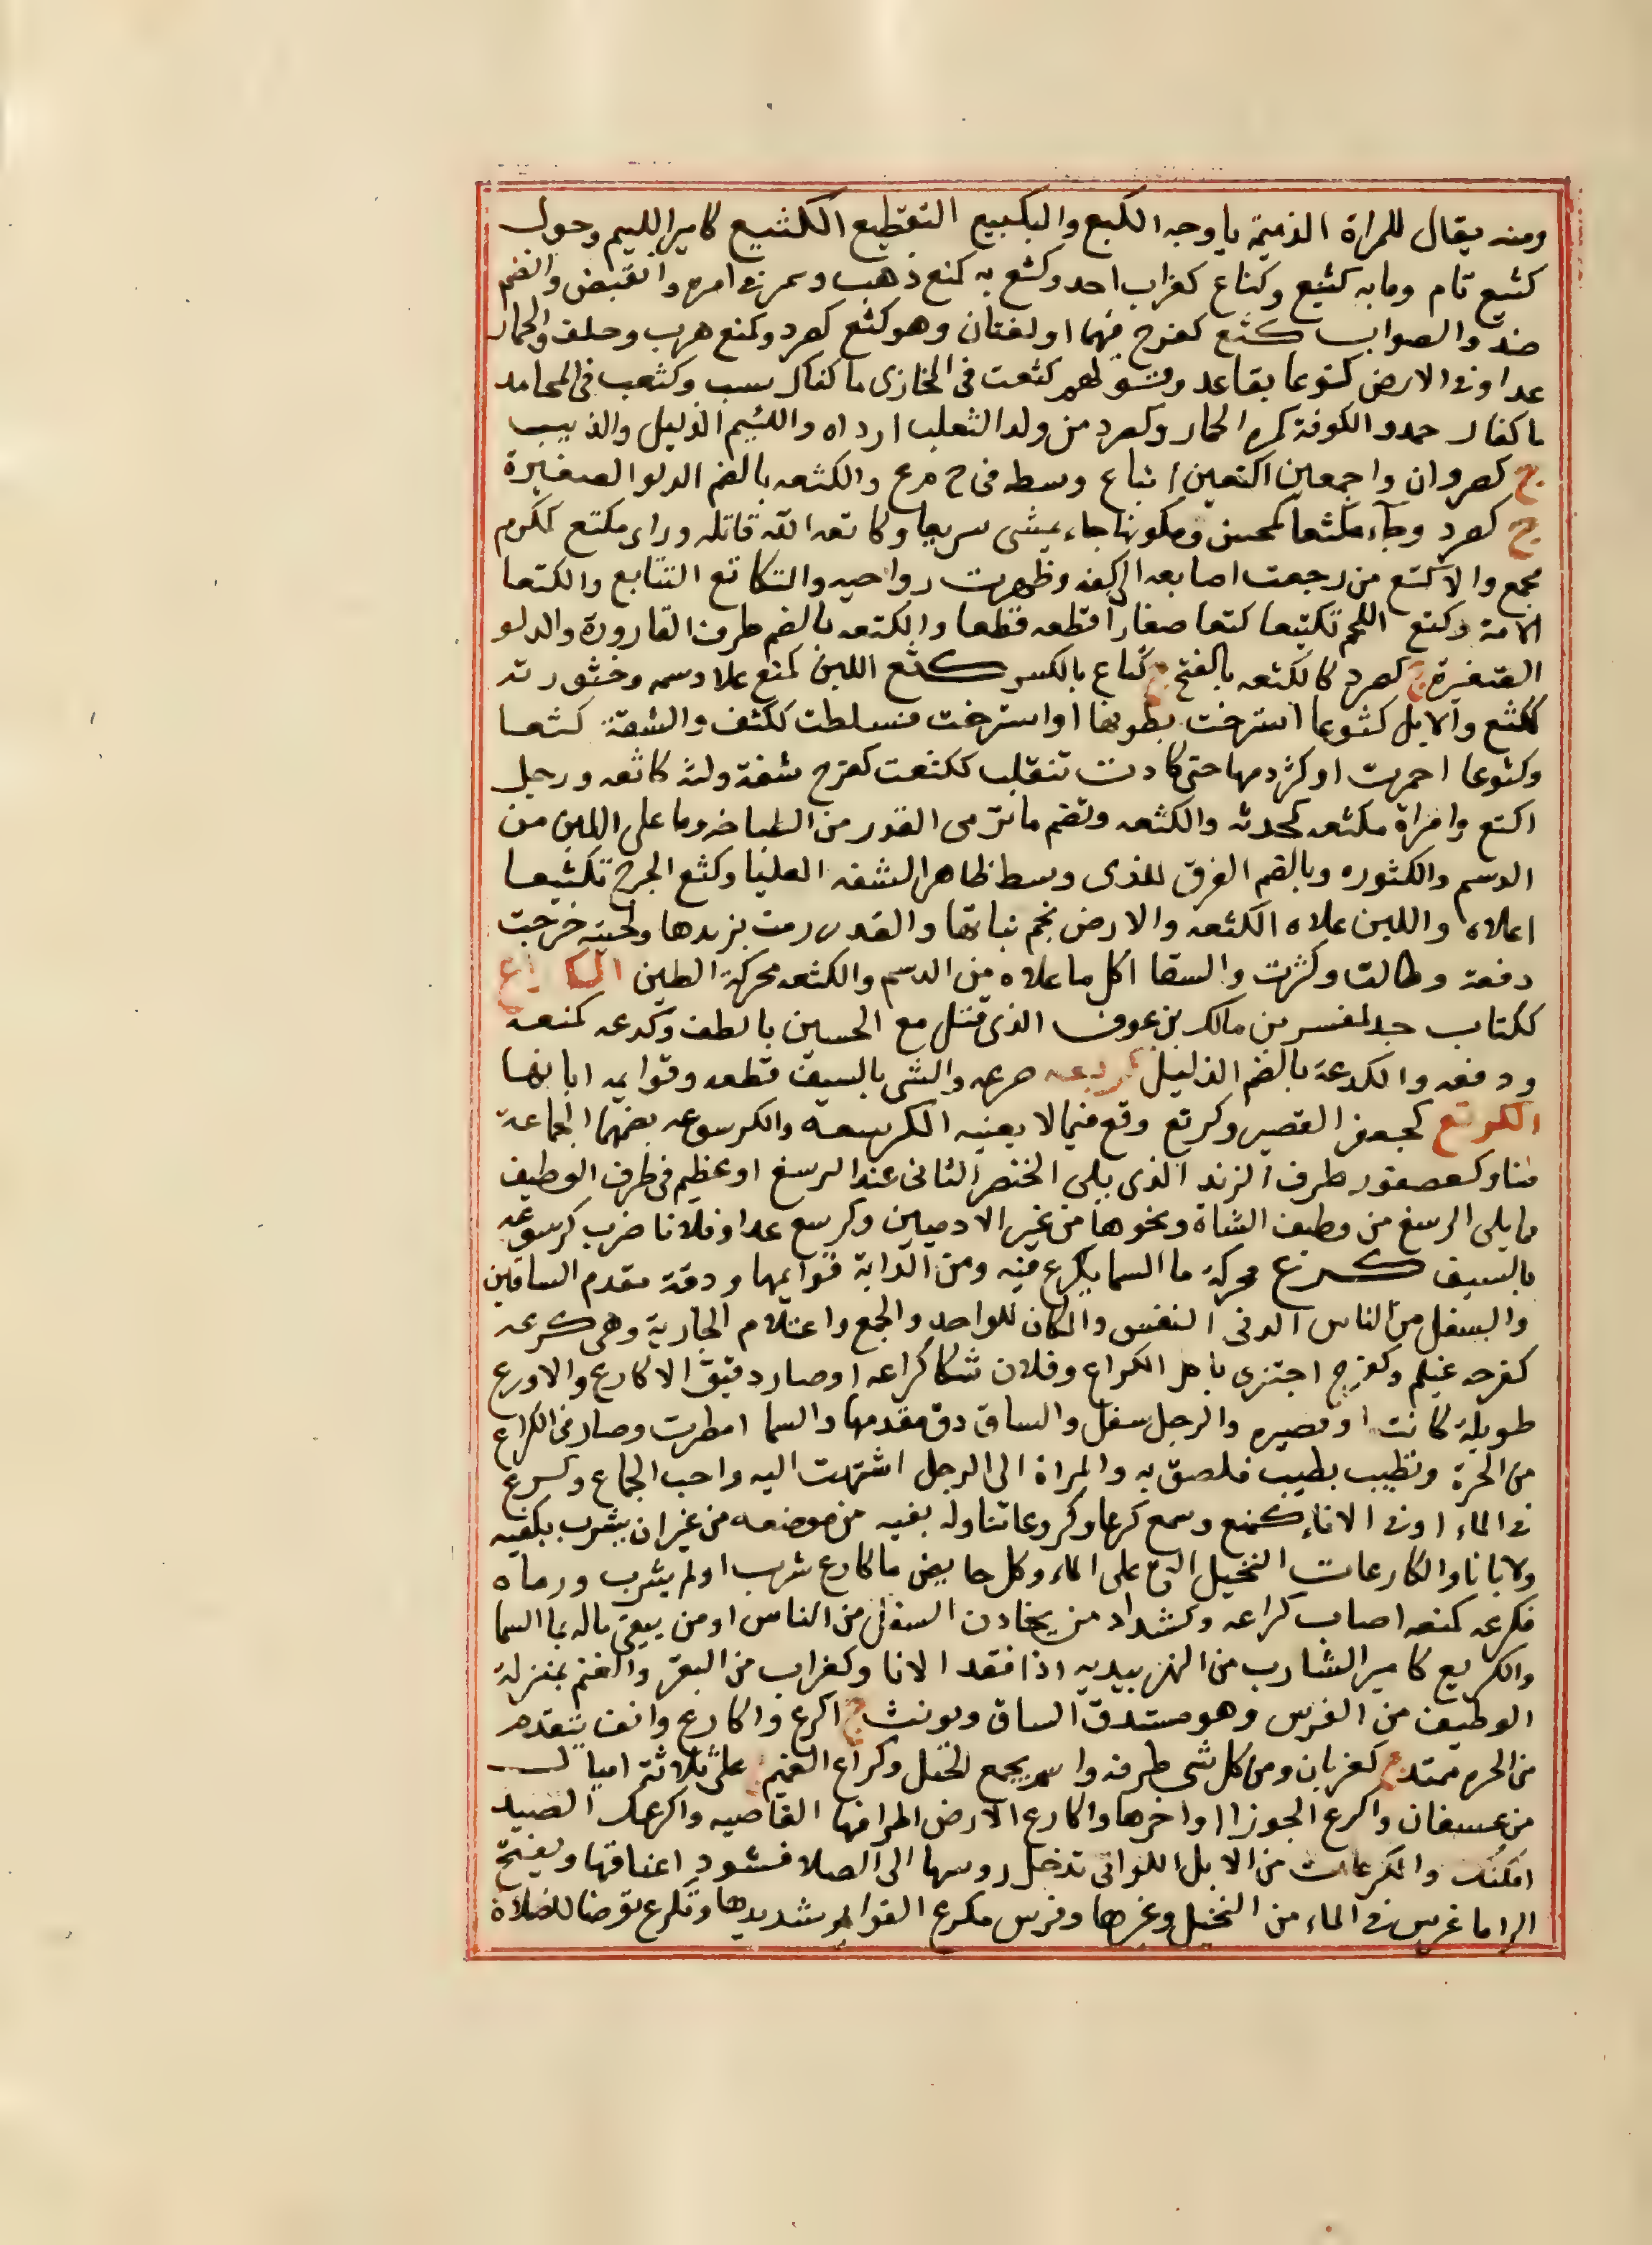 ومنه يقال للمراة الذميمة يا وجه الكبع والبكبيع التقطيع الكثيع كامير الليم وحول
كثيع تام وما به كثيع وكتاع كغراب احد وكثع به كمنع ذهب وشمر في امره وانقبض وانضم
ضد والصواب كثع كفرح فيهما او لغتان وهو كثع كصرد وكمنع هرب وحلف والحمار
عدا وفي الارض كتوعا بقاعد وقولهم كثعت في المخازى ما كفاك سبب وكثعت في المحامد
ما كفاك حمد والكوفة كمره الحمار وكصرد من ولد الثعلب ارداه واللئيم الذليل والذيب
ج كصردان واجمعين اكتعين اتباع وسط في ج م ع والكثعه بالضم الدلو الصغيرة
ج كصرد وجآء مكثعا كمحسن ومكوتها جاء يمشى سريعا وكاتعه الله قاتله وراى مكتع ككرم
مجمع والاكتع من رجعت اصابعه الى كفه وظهرت رواجبه والتكاتع التتابع والكتعا
الامة وكتع اللحم تكتيعا كتعا صغارا قطعه قطعا والكتعه بالضم طرف القارورة والدلو
الصغيرة ج كصرد كالكثعه بالفتح ج كتاع بالكسر كثع اللبن كمنع علا دسمه وخثورته
ككثع والابل كثوعا استرخت بطونها او استرخت فسلطت ككثف والشفة كثعا
وكثوعا احمرت او كثر دمها حتى كادت تنقلب ككثعت كفرح شفة ولثة كاثعه ورجل
اكتع وامراة مكثعه كمحدثه والكثعه وتضم ما ترمى القدر من الطباخه وما على اللبن من
الدسم والكثوره وبالضم الفرق للذى وسط ظاهر الشفه العليا وكثع الجرح تكثيعا
اعلاه واللبن علاه الكثعه والارض نجم نباتها والقدر رمت بزبدها ولحيته خرجت
دفعة وطالت وكثرت والسقا اكل ما علاه من الدسم والكثعه محركة الطين الكداع
ككتاب جد لمفسر بن مالك بن عوف الذى قتل مع الحسين بالطف وكدعه كمنعه
ودفعه والكدعة بالضم الذليل كربعه صرعه والشى بالسيف قطعه وقوايمه ابانها
الكرتع كجعفر القصير وكرتع وقع فيما لا يعنيه الكرسعة والكرسوعه بضمهما الجماعة
منا وكعصفور طرف الزند الذى يلى الخنصر الثانى عند الرسغ او عظيم في طرف الوظيف
مما يلى الرسغ من وظيف الشاة ونحوها من غير الادميين وكرسع عدا وفلانا ضرب كرسوعه
بالسيف كرع محركة ما السما يكرع فيه ومن الدابة قوايمها ودقة مقدم الساقين
والسفل من الناس الدنى النفس والمكان للواحد والجمع واعتلام الجارية وهى كرعه
كفرحه غيلم وكفرح اجتزى باكل الكراع وفلان شكا كراعه او صار دقيق الاكارع والاورع
طويلة كانت او قصيره والرجل سفل والساق دق مقدمها والسما امطرت وصار في الكراع
من الحرة وتطيب بطيب فلصق به والمراة الى الرجل اشتهت اليه واحب الجماع وكرع
في الماء او في الاناء كمنع وسمع كرعا وكروعا تناوله بفيه من موضعه من غير ان يشرب بكفيه
ولا باناء والكارعات النخيل التى على الماء وكل خايض ماء كارع شرب او لم يشرب ورماه
فكرعه كمنعه اصاب كراعه وكشداد من يخادن السفل من الناس او من يسقى ماله بما السما
والكريع كامير الشارب من النهر بيديه اذا فقد الانا وكغراب من البقر والغنم بمنزلة
الوظيف من الفرس وهو مستدق الساق ويونث ج اكرع واكارع وانف يتقدم
من الحره ممتد ج كغربان ومن كل شى طرفه واسم يجمع الخيل وكراع الغميم على ثلاثة اميال
من عسفان واكرع الجوزا اواخرها واكارع الارض اطرافها القاصيه واكرعك الصيد
امكنك والمكرعات من الابل اللواتى تدخل روسها الى الصلا فتسود اعناقها وبفتح
الرا ما غرس في الماء من النخيل وغيرها وفرس مكرع القوايم شديدها وتكرع توضا للصلاة